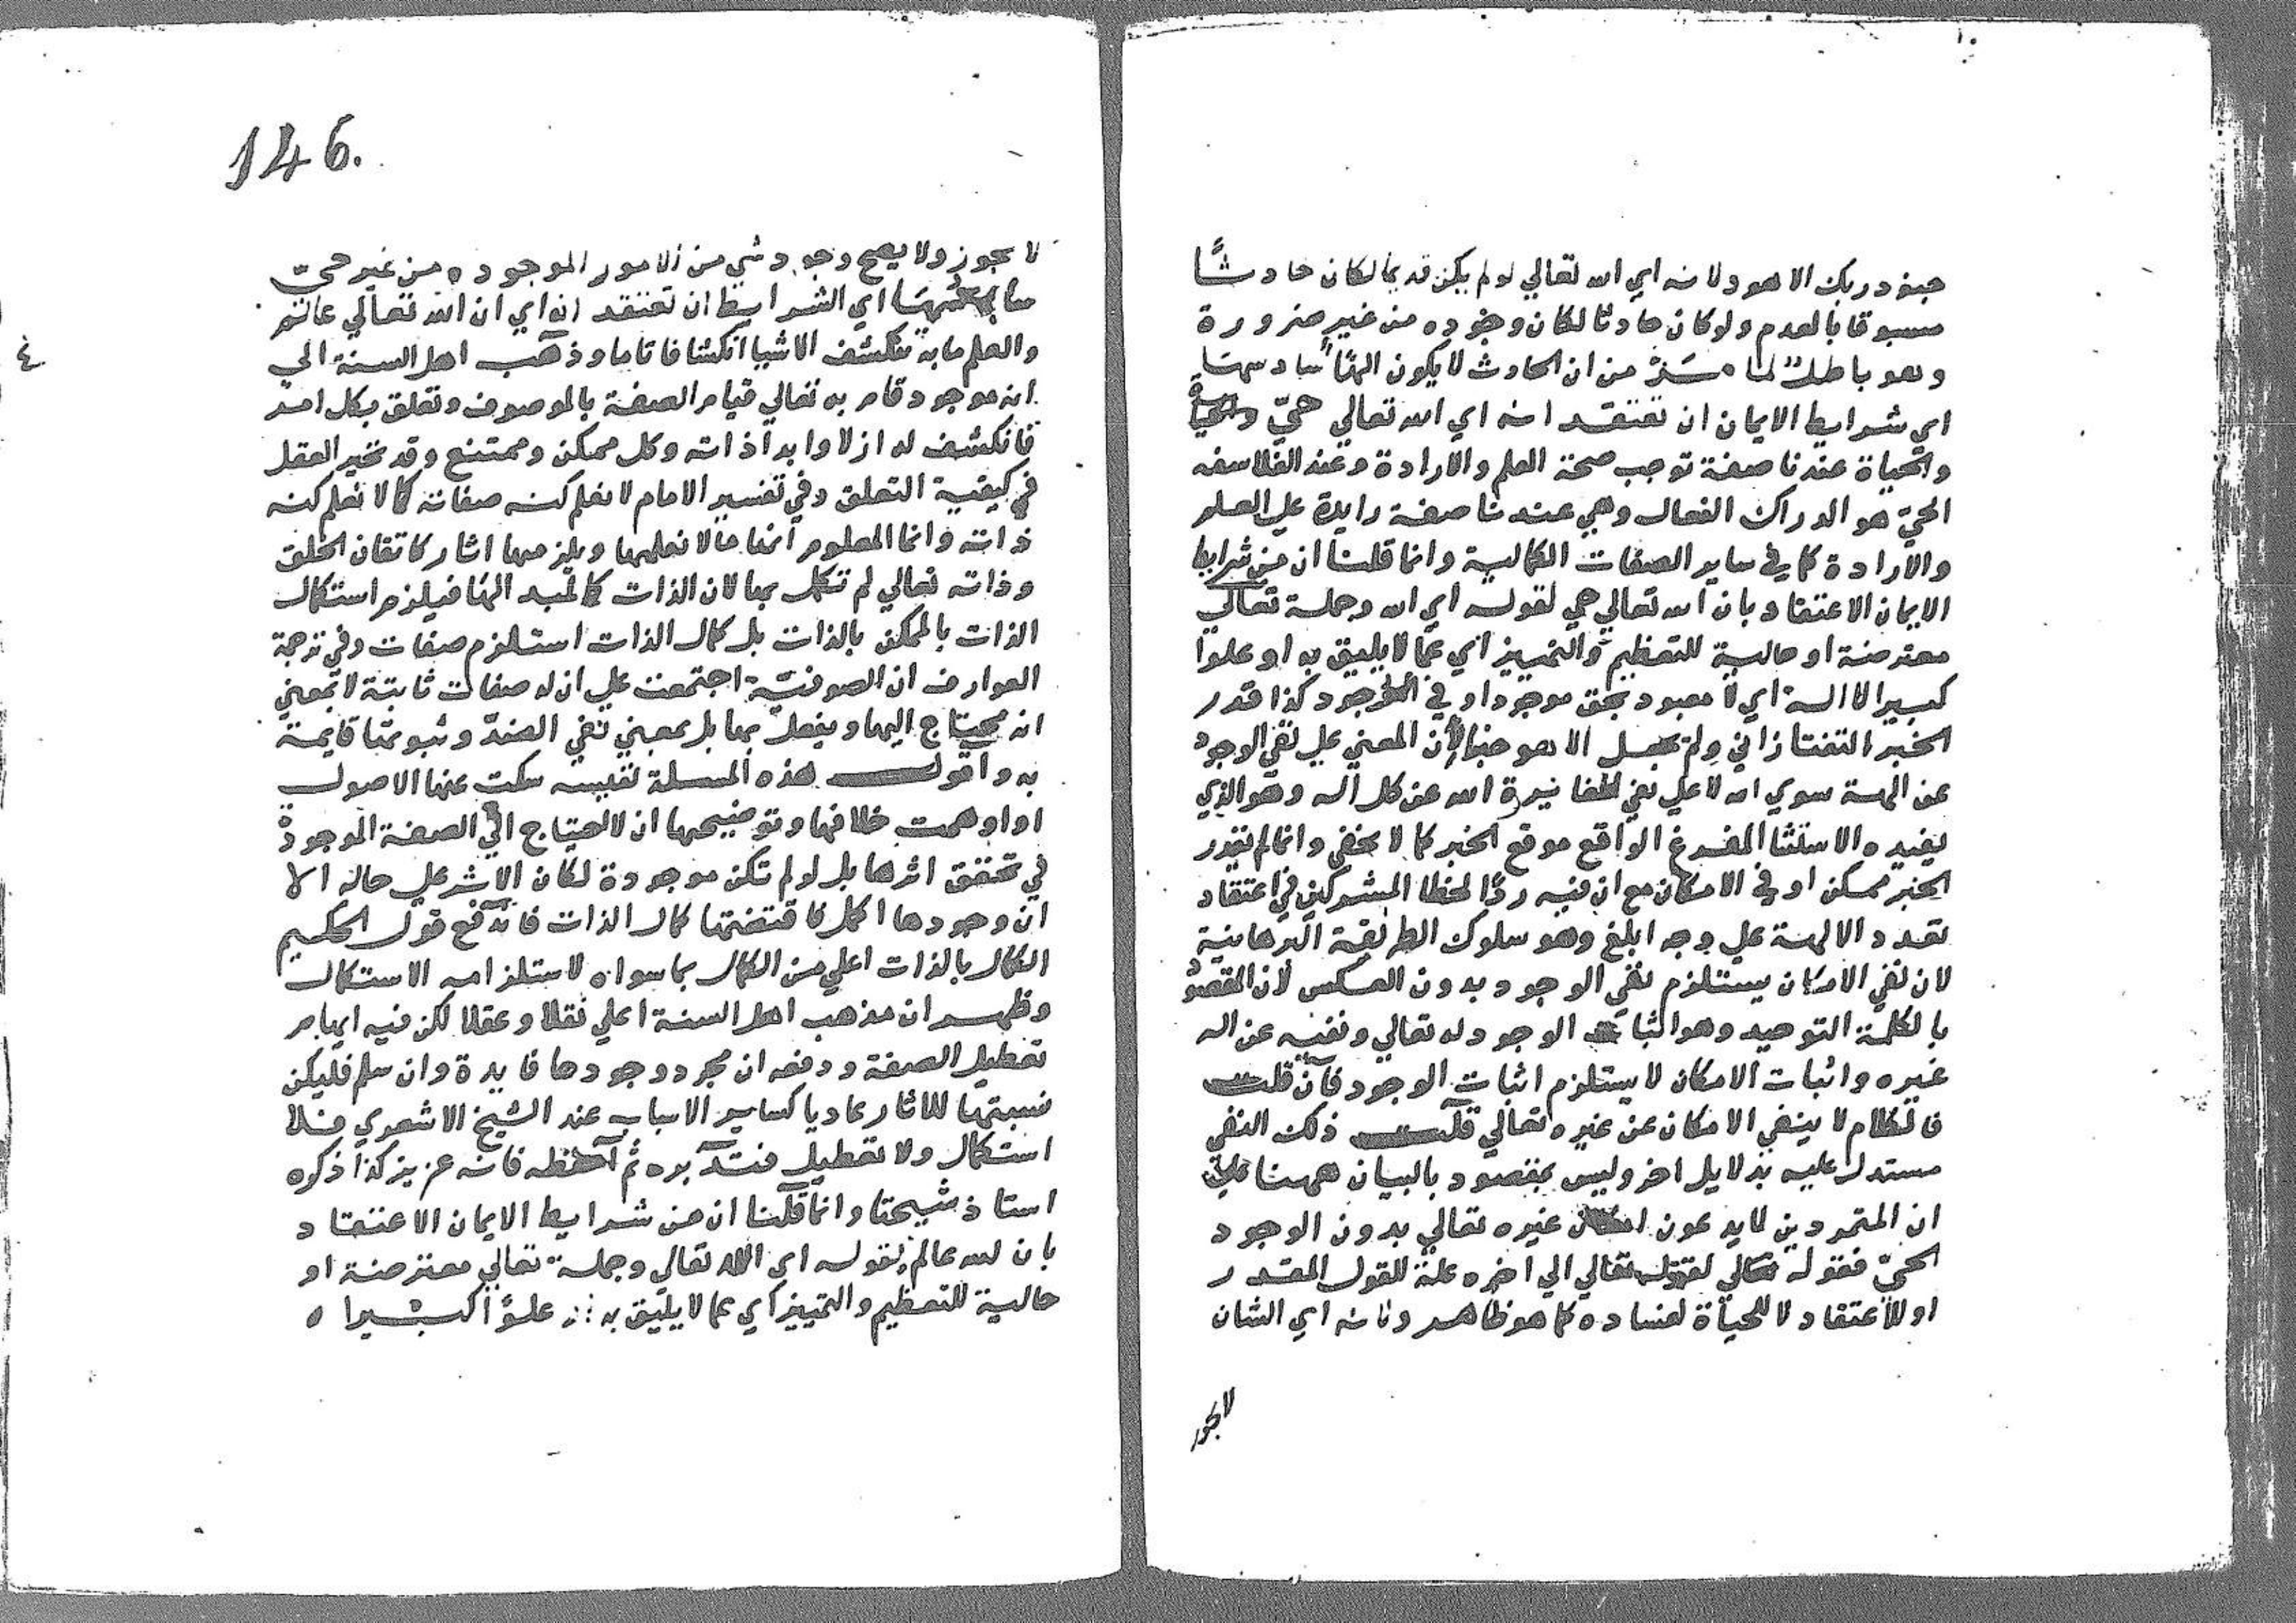 جنود ربك الا هو ولانه اي الله تعالي لو لم يكن قديما لكان حادثًا
مسبوقا بالعدم ولو كان حادثا لكان وجوده من غيره ضرورة
وهو باطل لما مرّ من ان الحادث لا يكون الهًا سادسها
اي شرايط الايمان ان تعتقد انه اي الله تعالي حيّ
والحياة عندنا صفة توجب صحة العلم والارادة وعند الفلاسفه
الحيّ هو الدراك الفعال وهي عندنا صفة زايدة علي العلم
والارادة كما في ساير الصفات الكمالية وانما قلنا ان من شرايط
الايمان الاعتقاد بان الله تعالي حي لقوله اي الله وجملة تعالي
معترضة او حالية للتعظيم والتمييز اي عما لا يليق به او علوا
كبيرا لا اله اي لا معبود بحق موجود او في الوجود كذا قدر
الخبر التفتازاني ولم يجعل الا هو خبرا لان المعني علي نفي الوجود
عن الهة سوي الله لا علي نفي مغايرة الله عن كل اله وهو الذي
يفيده الاستثنا المفرغ الواقع موقع الخبر كما لا يخفي وانما لم يقدر
الخبر ممكن او في الامكان مع ان فيه ردًا لخطا المشركين في اعتقاد
تعدد الالهة علي وجه ابلغ وهو سلوك الطريقة البرهانية
لان نفي الامكان يستلزم نفي الوجود بدون العكس لان المقصود
بالكلمة التوحيد وهو اثبات الوجود له تعالي ونفيه عن اله
غيره واثبات الامكان لا يستلزم اثبات الوجود فان قلت
فالكلام لا ينفي الامكان عن غيره تعالي قلت ذلك النفي
مستدل عليه بدلايل اخر وليس بمقصود بالبيان ههنا علي
ان المتمردين لا يدعون امكان غيره تعالي بدون الوجود
الحيّ فقوله تعالي لقوله تعالي الي اخره علة للقول المقدر
او للاعتقاد لا للحياة لفساده كما هو ظاهر ولانه اي الشان
لا يجوز
146.
لا يجوز ولا يصح وجود شي من الامور الموجوده من غير حيّ
سابعها اي الشرايط ان تعتقد انه اي ان الله تعالي عالم
والعلم ما به ينكشف الاشيا انكشافا تاما وذهب اهل السنة الي
انه موجود قام به تعالي قيام الصفة بالموصوف وتعلق بكل امر
فانكشف له ازلا وابدا ذاته وكل ممكن وممتنع وقد تحير العقل
في كيفية التعلق وفي تفسير الامام لا نعلم كنه صفاته كما لا نعلم كنه
ذاته وانما المعلوم انما لا نعلمها ويلزمها اثار كاتقان الخلق
وذاته تعالي لم تكمل بها لان الذات كالمبدا لها فيلزم استكمال
الذات بالممكن بالذات بل كمال الذات استلزم صفات وفي ترجمة
العوارف ان الصوفيّة اجتمعت علي ان له صفات ثابتة لا بمعني
انه محتاج اليها ويفعل بها بل بمعني نفي الضدّ وثبوتها قايمة
به واقول هذه المسلة نفيسه سكت عنها الاصول
او اوهمت خلافها وتوضيحها ان لا احتياج الي الصفة الموجودة
في تحقق اثرها بل لو لم تكن موجودة لكان الاثر علي حاله الا
ان وجودها اكمل فاقتضتها كمال الذات فاندفع قول الحكيم
الكمال بالذات اعلي من الكمال بما سواه لاستلزامه الاستكمال
وظهر ان مذهب اهل السنة اعلي نقلا وعقلا لكن فيه ايهام
تعطيل الصفة ودفعه ان مجرد وجودها فايدة وان سلم فليكن
نسبتها للاثار عاديا كساير الاسباب عند الشيخ الاشعري فلا
استكمال ولا تعطيل فتدبره ثم احفظه فانه عزيز كذا ذكره
استاذ شيخنا وانما قلنا ان من شرايط الايمان الاعتقاد
بان الله عالم لقوله اي الله تعالي وجملة تعالي معترضة او
حالية للتعظيم والتمييز اي عما لا يليق به علوًا كبيرا ه